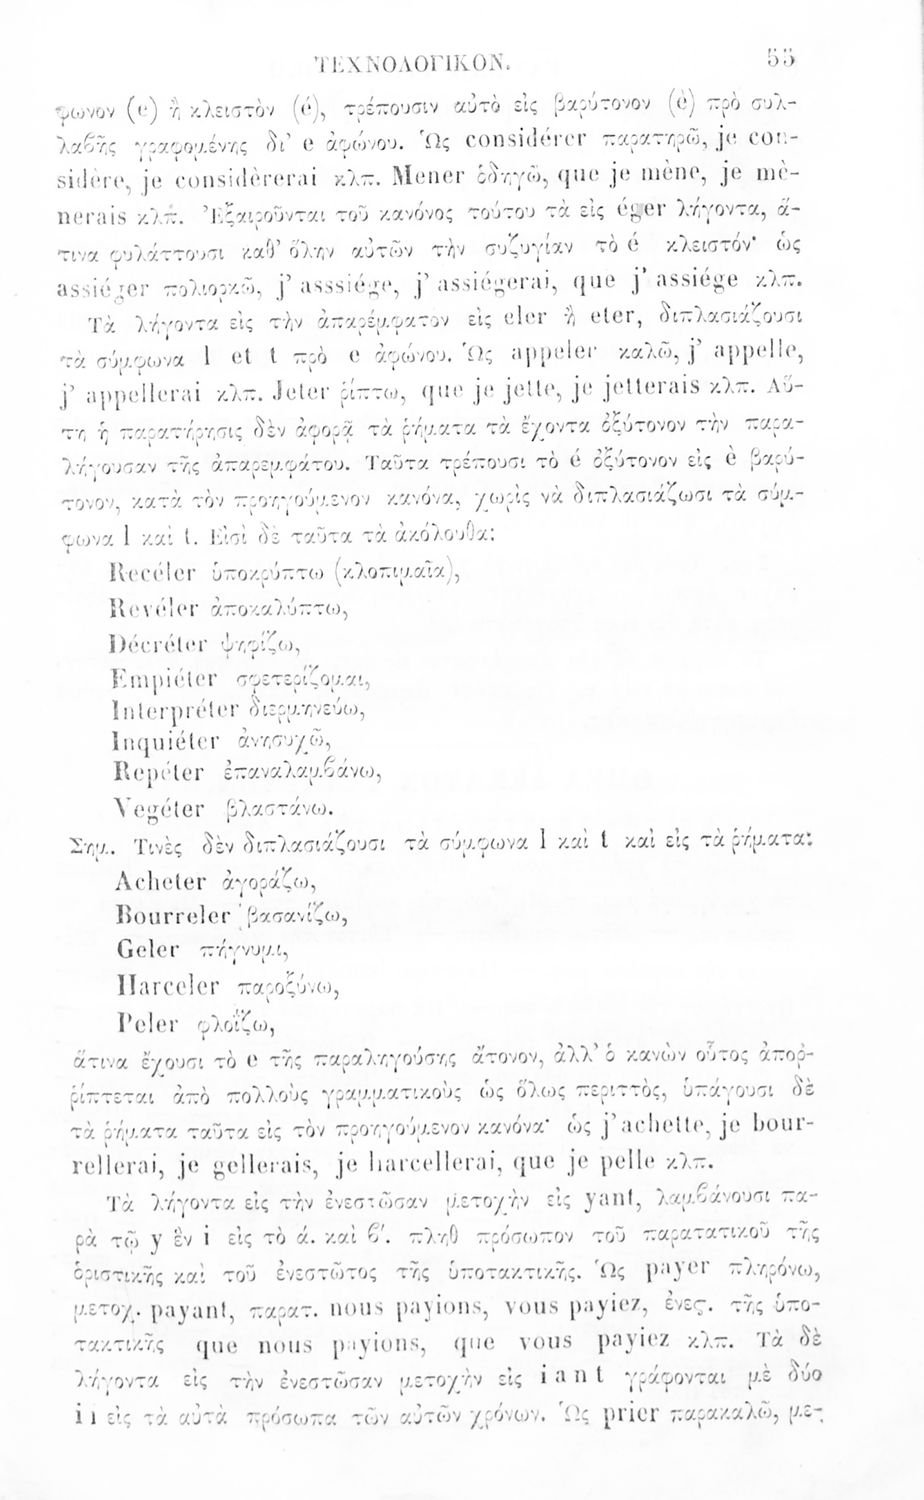 ΤΕΧΝΟΛΟΓΙΚΟΝ. 55
φωνον (e) ἢ κλειστὸν (é), τρέπουσιν αὐτὸ εἰς βαρύτονον (è) πρὸ συλ-
λαβῆς γραφομένης δι’ e ἀφώνου. Ὡς considérer παρατηρῶ, je con-
sidère, je considèrerai κλπ. Mener ὁδηγῶ, que je mène, je mè-
nerais κλπ. Ἐξαιροῦνται τοῦ κανόνος τούτου τὰ εἰς éger λήγοντα, ἅ-
τινα φυλάττουσι καθ’ ὅλην αὐτῶν τὴν συζυγίαν τὸ é κλειστόν· ὡς
assiéger πολιορκῶ, j’ asssiége, j’ assiégerai, que j’ assiége κλπ.
Τὰ λήγοντα εἰς τὴν ἀπαρέμφατον εἰς eler ἢ eter, διπλασιάζουσι
τὰ σύμφωνα l et t πρὸ e ἀφώνου. Ὡς appeler καλῶ, j’ appelle,
j’ appellerai κλπ. Jeter ῥίπτω, que je jette, je jetterais κλπ. Αὕ-
τη ἡ παρατήρησις δὲν ἀφορᾷ τὰ ῥήματα τὰ ἔχοντα ὀξύτονον τὴν παρα-
λήγουσαν τῆς ἀπαρεμφάτου. Ταῦτα τρέπουσι τὸ é ὀξύτονον εἰς è βαρύ-
τονον, κατὰ τὸν προηγούμενον κανόνα, χωρὶς νὰ διπλασιάζωσι τὰ σύμ-
φωνα l καὶ t. Εἰσὶ δὲ ταῦτα τὰ ἀκόλουθα:
Recéler ὑποκρύπτω (κλοπιμαῖα),
Revéler ἀποκαλύπτω,
Décréter ψηφίζω,
Empiéter σφετερίζομαι,
Interpréter διερμηνεύω,
Inquiéter ἀνησυχῶ,
Repéter ἐπαναλαμβάνω,
Vegéter βλαστάνω.
Σημ. Τινὲς δὲν διπλασιάζουσι τὰ σύμφωνα l καὶ t καὶ εἰς τὰ ῥήματα:
Acheter ἀγοράζω,
Bourreler βασανίζω,
Geler πήγνυμι,
Harceler παροξύνω,
Peler φλοΐζω,
ἅτινα ἔχουσι τὸ e τῆς παραληγούσης ἄτονον, ἀλλ’ ὁ κανὼν οὗτος ἀποῤ-
ῥίπτεται ἀπὸ πολλοὺς γραμματικοὺς ὡς ὅλως περιττὸς, ὑπάγουσι δὲ
τὰ ῥήματα ταῦτα εἰς τὸν προηγούμενον κανόνα· ὡς j’ achette, je bour-
rellerai, je gellerais, je harcellerai, que je pelle κλπ.
Τὰ λήγοντα εἰς τὴν ἐνεστῶσαν μετοχὴν εἰς yant, λαμβάνουσι πα-
ρὰ τῷ y ἓν i εἰς τὸ ά. καὶ β΄. πληθ πρόσωπον τοῦ παρατατικοῦ τῆς
ὁριστικῆς καὶ τοῦ ἐνεστῶτος τῆς ὑποτακτικῆς. Ὡς payer πληρόνω,
μετοχ. payant, παρατ. nous payions, vous payiez, ἐνεϛ. τῆς ὑπο-
τακτικῆς que nous payions, que vous payiez κλπ. Τὰ δὲ
λήγοντα εἰς τὴν ἐνεστῶσαν μετοχὴν εἰς iant γράφονται μὲ δύο
ii εἰς τὰ αὐτὰ πρόσωπα τῶν αὐτῶν χρόνων. Ὡς prier παρακαλῶ, με-